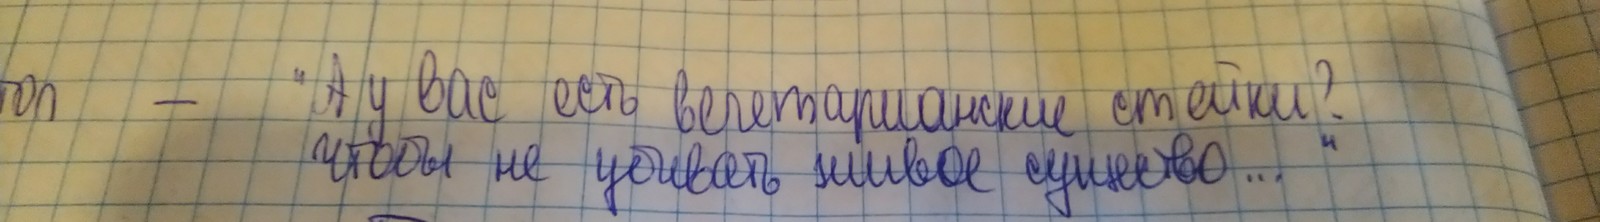 топ — "А у вас есть вегетарианские стейки?
чтобы не убивать живое существо..."